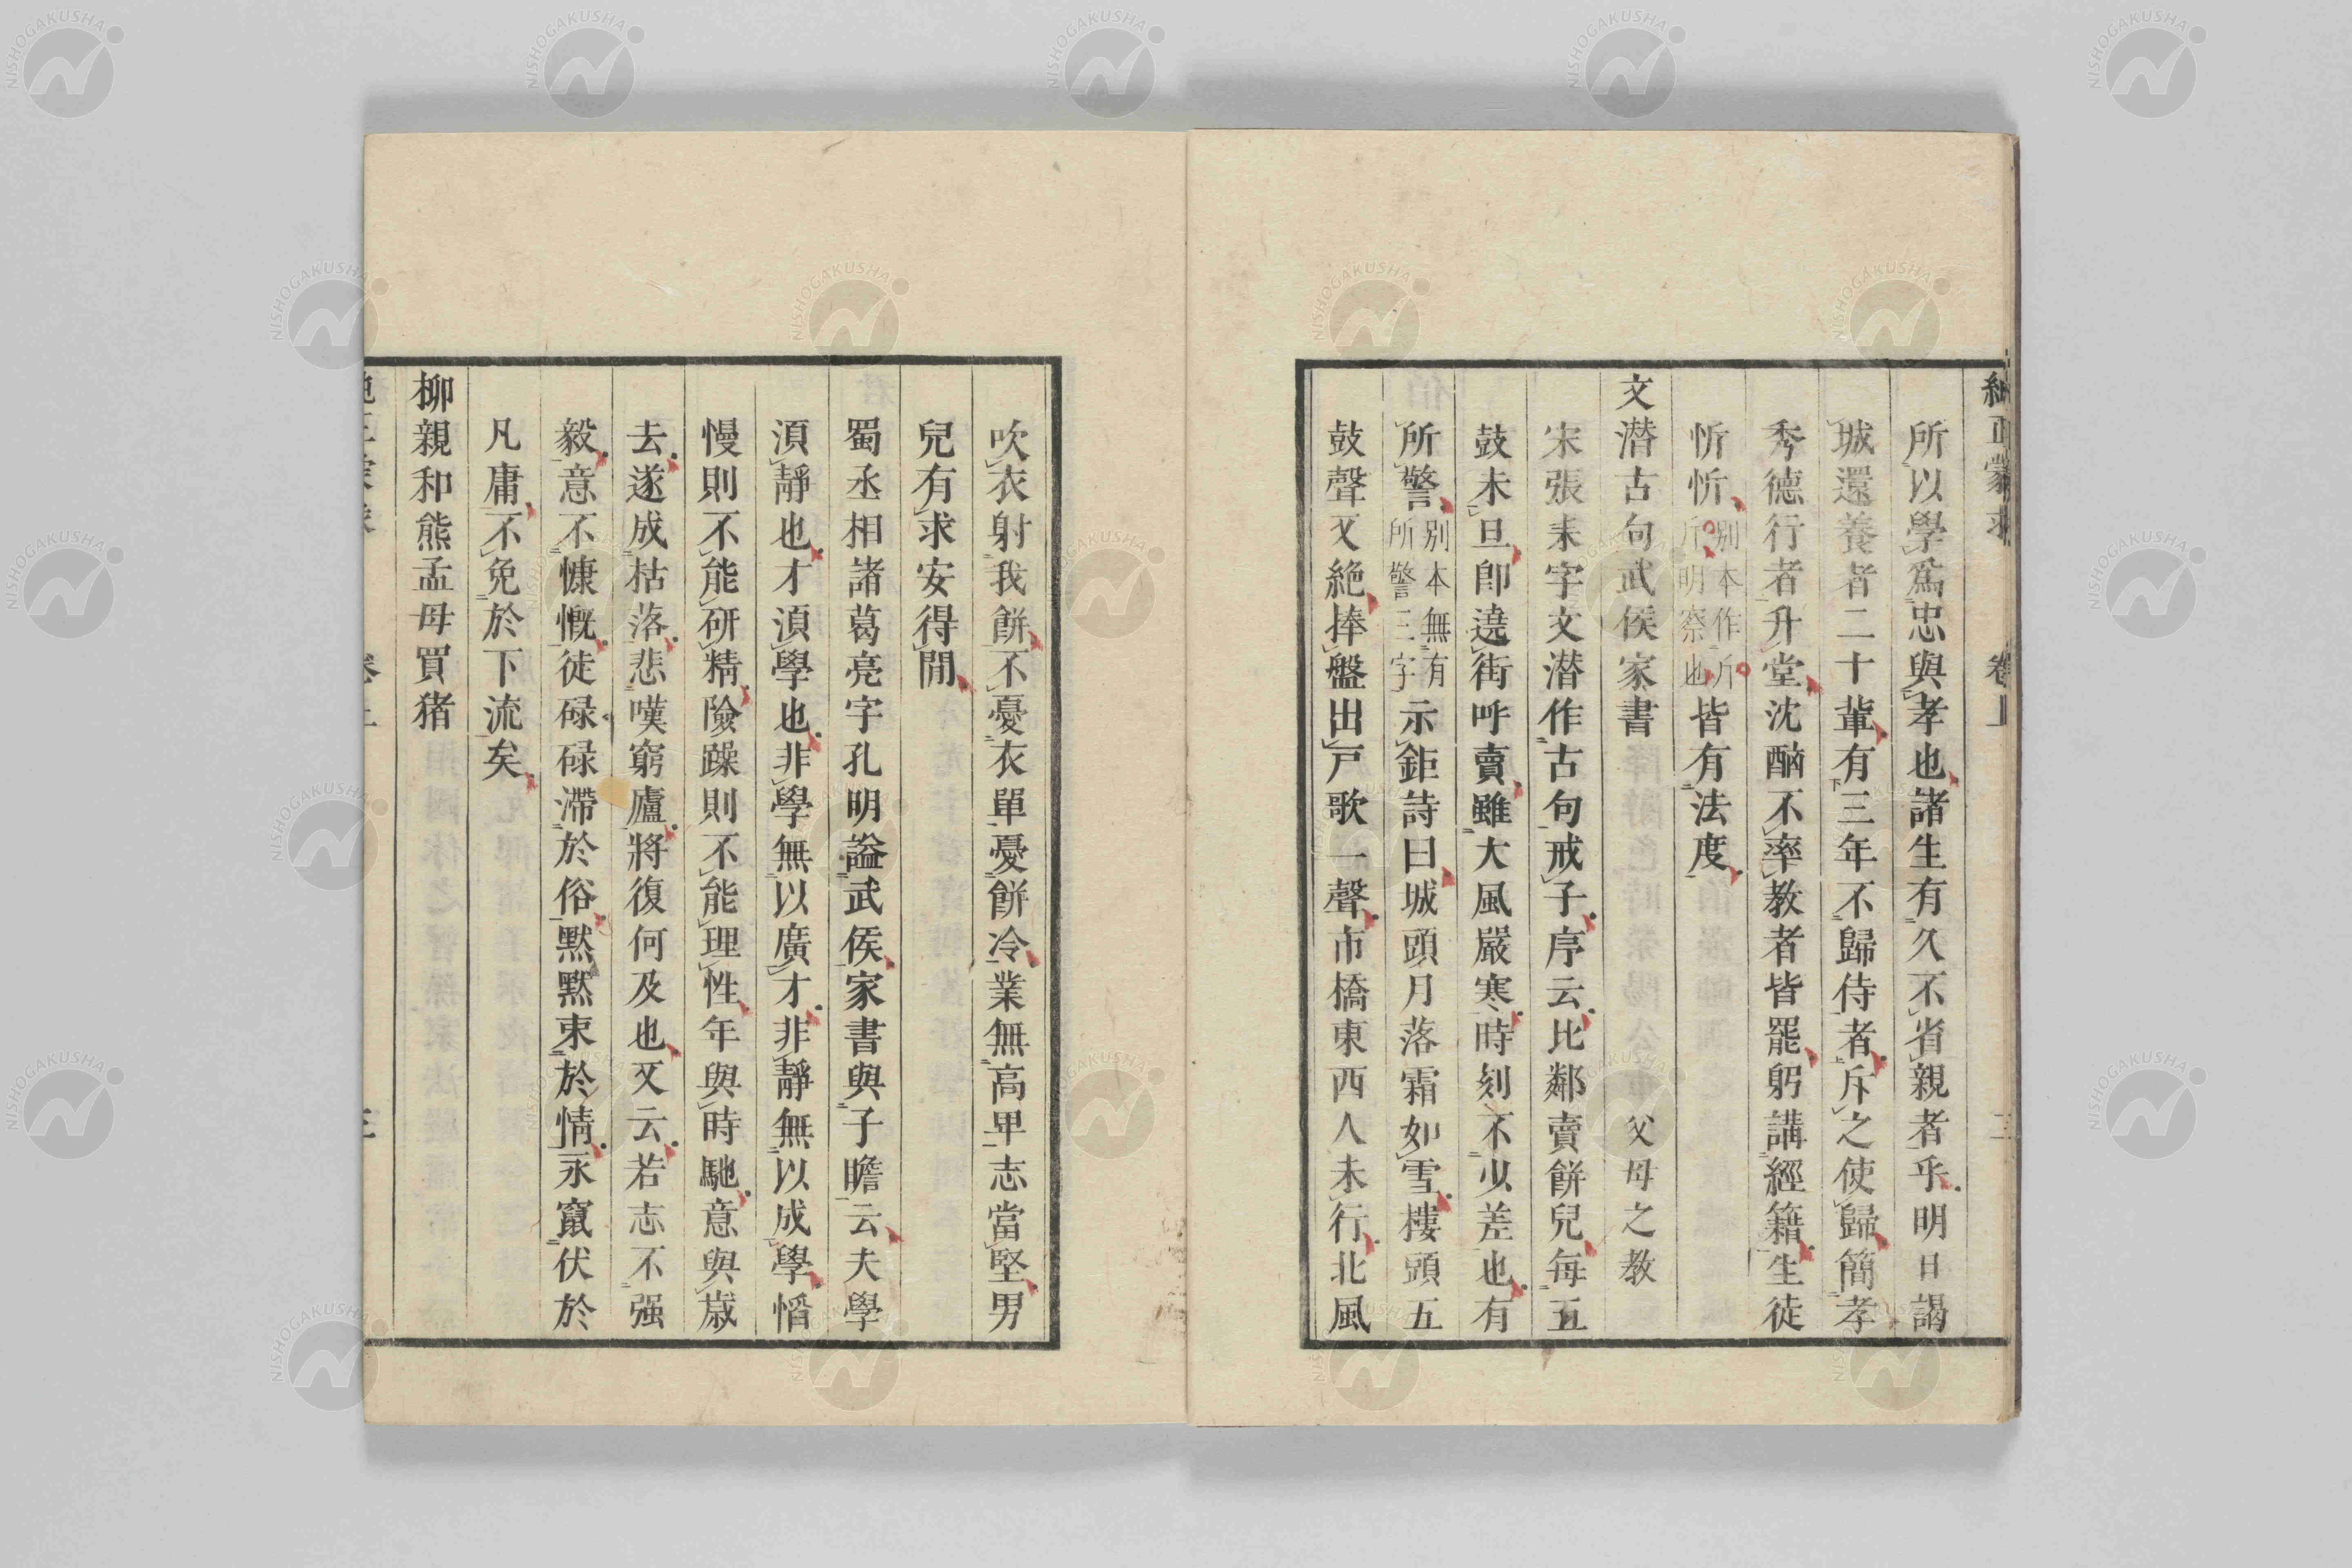 純正蒙求　卷上　三
所以學爲忠與孝也諸生有久不省親者乎明日謁
城還養者二十輩有三年不歸侍者斥之使歸簡孝
秀德行者升堂沈酗不率教者皆罷躬講經籍生徒
忻忻別本作斤斤明察也皆有法度
文潛古句武侯家書　父母之教
宋張耒字文潛作古句戒子序云比鄰賣餅兒每五
鼓未旦卽遶街呼賣雖大風嚴寒時刻不少差也有
所警別本無有所警三字示鉅詩曰城頭月落霜如雪樓頭五
鼓聲又絶捧盤出戸歌一聲市橋東西人未行北風
吹衣射我餅不憂衣單憂餅冷業無高卑志當堅男
兒有求安得閒
蜀丞相諸葛亮字孔明謚武侯家書與子瞻云夫學
須靜也才須學也非學無以廣才非靜無以成學慆
慢則不能研精險躁則不能理性年與時馳意與歲
去遂成枯落悲嘆窮廬將復何及也又云若志不强
毅意不慷慨徒碌碌滯於俗黙黙束於情永竄伏於
凡庸不免於下流矣
柳親和熊孟母買猪
NISHOGAKUSHA